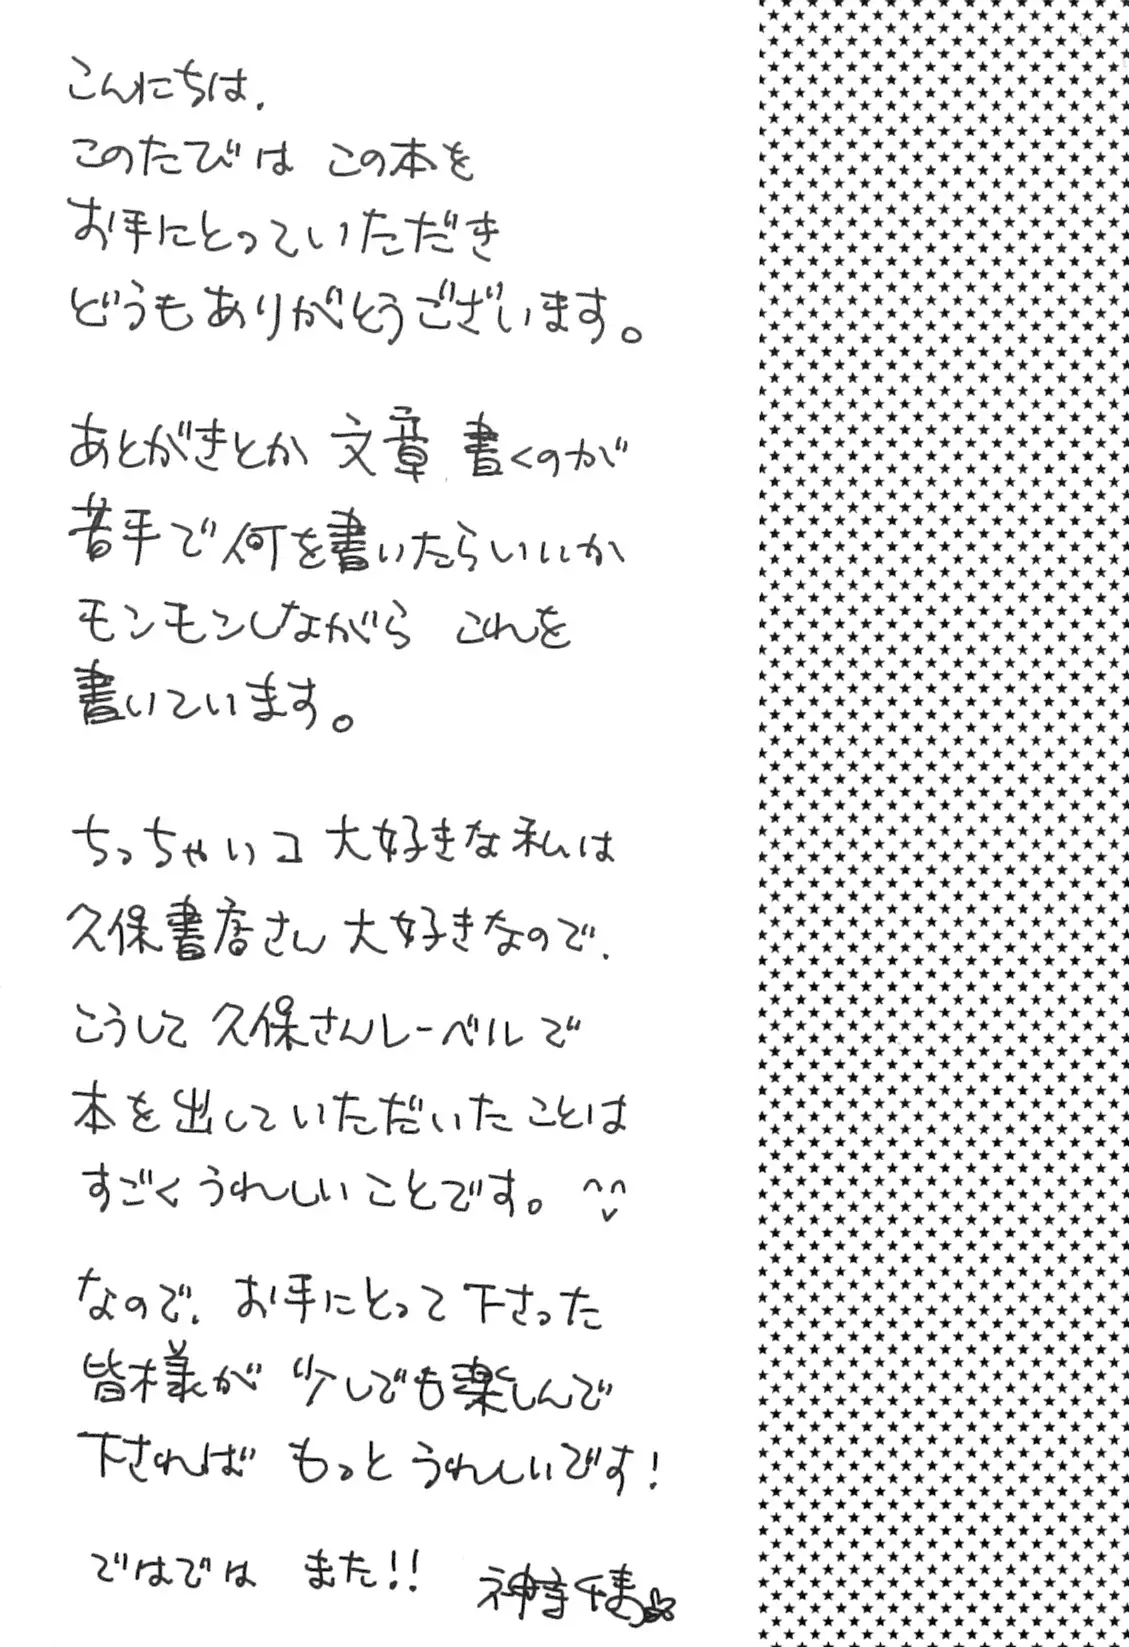 こんにちは.
このたびは この本を
お手にとっていただき
どうもありがとうございます。
あとがきとか 文章 書くのが
苦手で何を書いたらいいか
モンモンしながら これを
書いています。
ちっちゃいコ 大好きな私は
久保書店さん 大好きなので.
こうして 久保さんレーベルで
本を出していただいたことは
すごくうれしいことです。 ^^
なので. お手にとって下さった
皆様が 少しでも楽しんで
下されば もっとうれしいです!
ではでは また!!